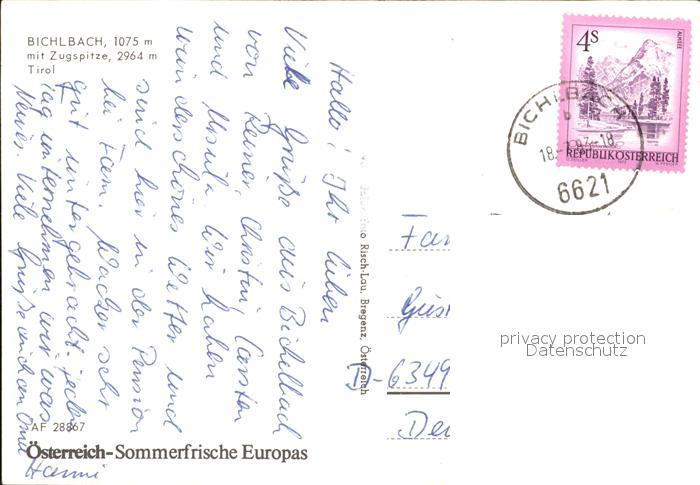 BICHLBACH, 1075 m
mit Zugspitze, 2964 m
Tirol
Hallo! Ihr lieben
Viele Grüße aus Bichelbach
von Reiner, Christin, Carsten
und Ursula. Wir haben
wunderschönes Wetter und
sind hier in der Pension
bei Fam. Wacker sehr
gut untergebracht. jeden
Tag unternehmen wir was
Neues. Viele Grüße auch an Oma
Hanni
AF 28867
Österreich-Sommerfrische Europas
Risch-Lau, Bregenz, Österreich
4S
ALMSEE
REPUBLIK ÖSTERREICH
BICHLBACH
b
6621
Fam
D-6349
privacy protection
Datenschutz